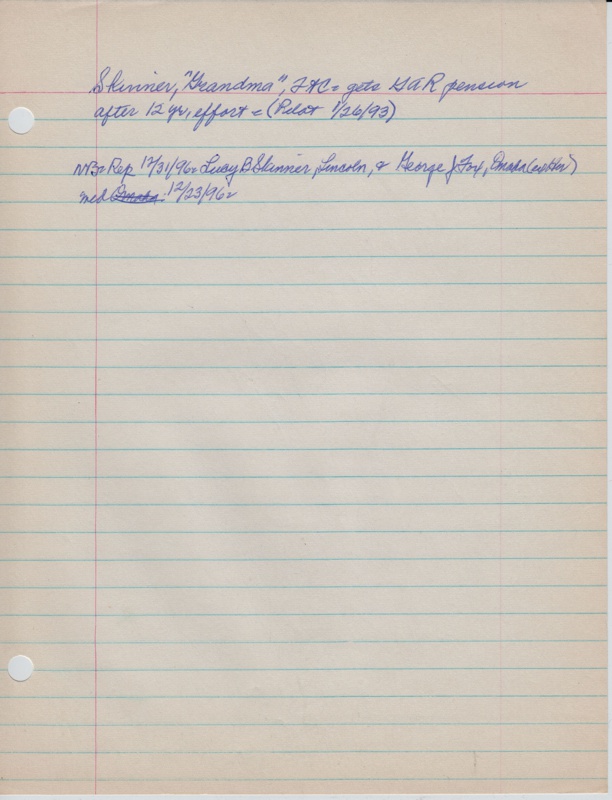 Skinner, "Grandma", FtC= gets GAR pension
after 12 yr, effort = (Pilot 1/26/93)
NB= Rep 12/31/96= Lucy B Skinner, Lincoln, & George J Fox, Omaha
med Omaha 12/23/96=